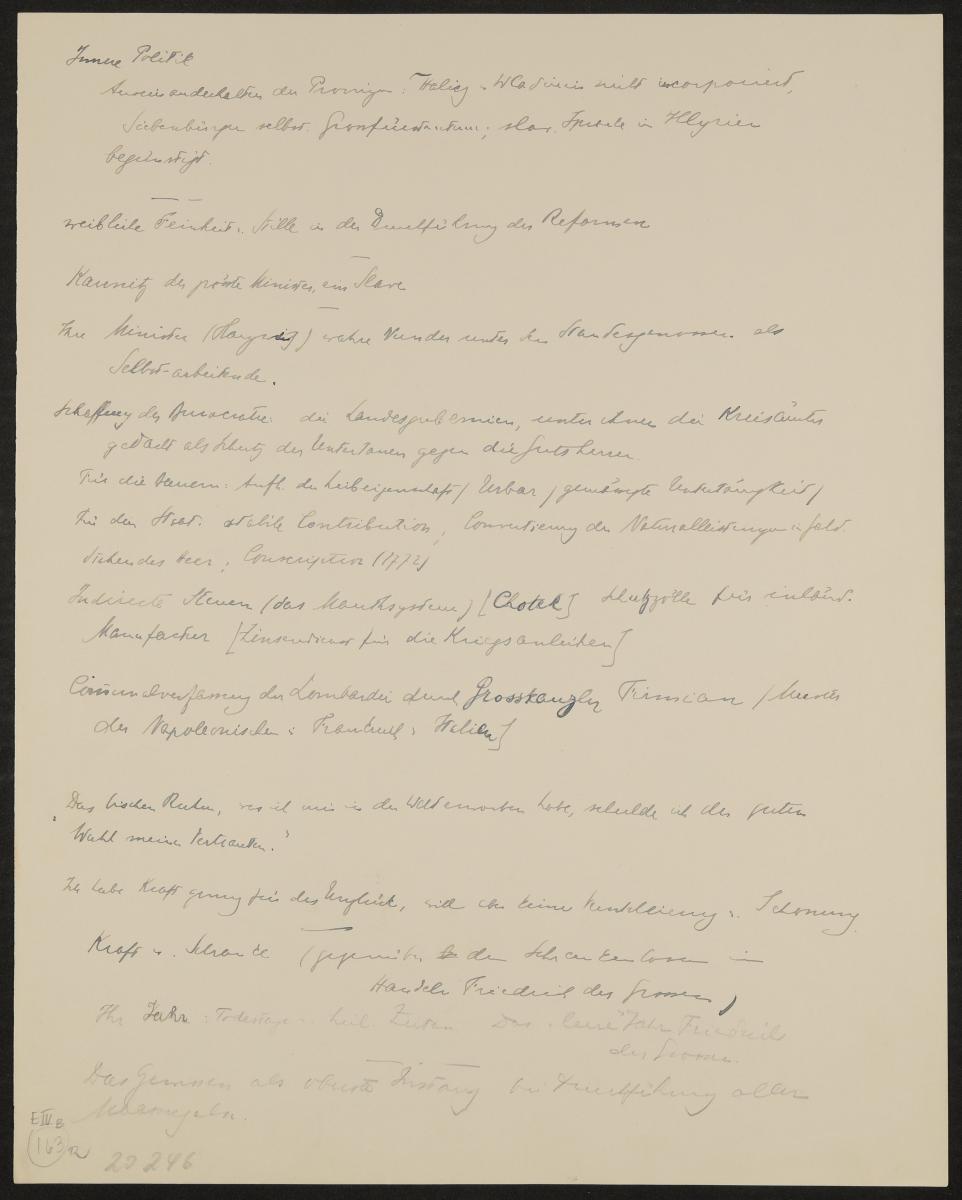 Innere Politik
Auseinanderhalten der Provinzen: Halicz u. Wladimir nicht incorporiert,
Siebenbürgen selbst. Grossfürstentum; slav. Sprache in Illyrien
begünstigt.
weibliche Feinheit u. Stille in der Durchführung der Reformen
Kaunitz der grösste Minister, ein Slave
Ihre Minister (Haugwitz) wahre Wunder unter den Standesgenossen als
Selbst-arbeitende.
Schaffung der Bureaucratie: die Landesgubernien, unter ihnen die Kreisämter
gedacht als Schutz der Untertanen gegen die Gutsherren.
Für die Bauern: Aufh. der Leibeigenschaft / Urbar / gemässigte Untertänigkeit /
Für den Staat: stabile Contribution, Convertierung der Naturalleistungen in Geld.
stehendes Heer; Conscription (1772)
Indirecte Steuern (das Mauthsystem) [Chotek] Schutzzölle für inländ.
Manufactur [Zinsendienst für die Kriegsanleihen]
Communalverfassung der Lombardei durch Grosskanzler /Muster
der Napoleonischen in Frankreich u. Italien]
"Das bischen Ruhm, was ich mir in der Welt erworben habe, schulde ich der guten
Wahl meiner Vertrauten."
Ich habe Kraft genug für das Unglück, will aber keine u. Schonung.
Kraft u. Schranke (gegenüber dem Schrankenlosen im
Handeln Friedrich des Grossen)
Ihr Jahr: Todestage u. heil. Zeiten Das "leere" Jahr Friedrich
des Grossen.
Das Gewissen als oberste Instanz bei Durchführung aller
Massregeln.
E IV B
163 12
20 246